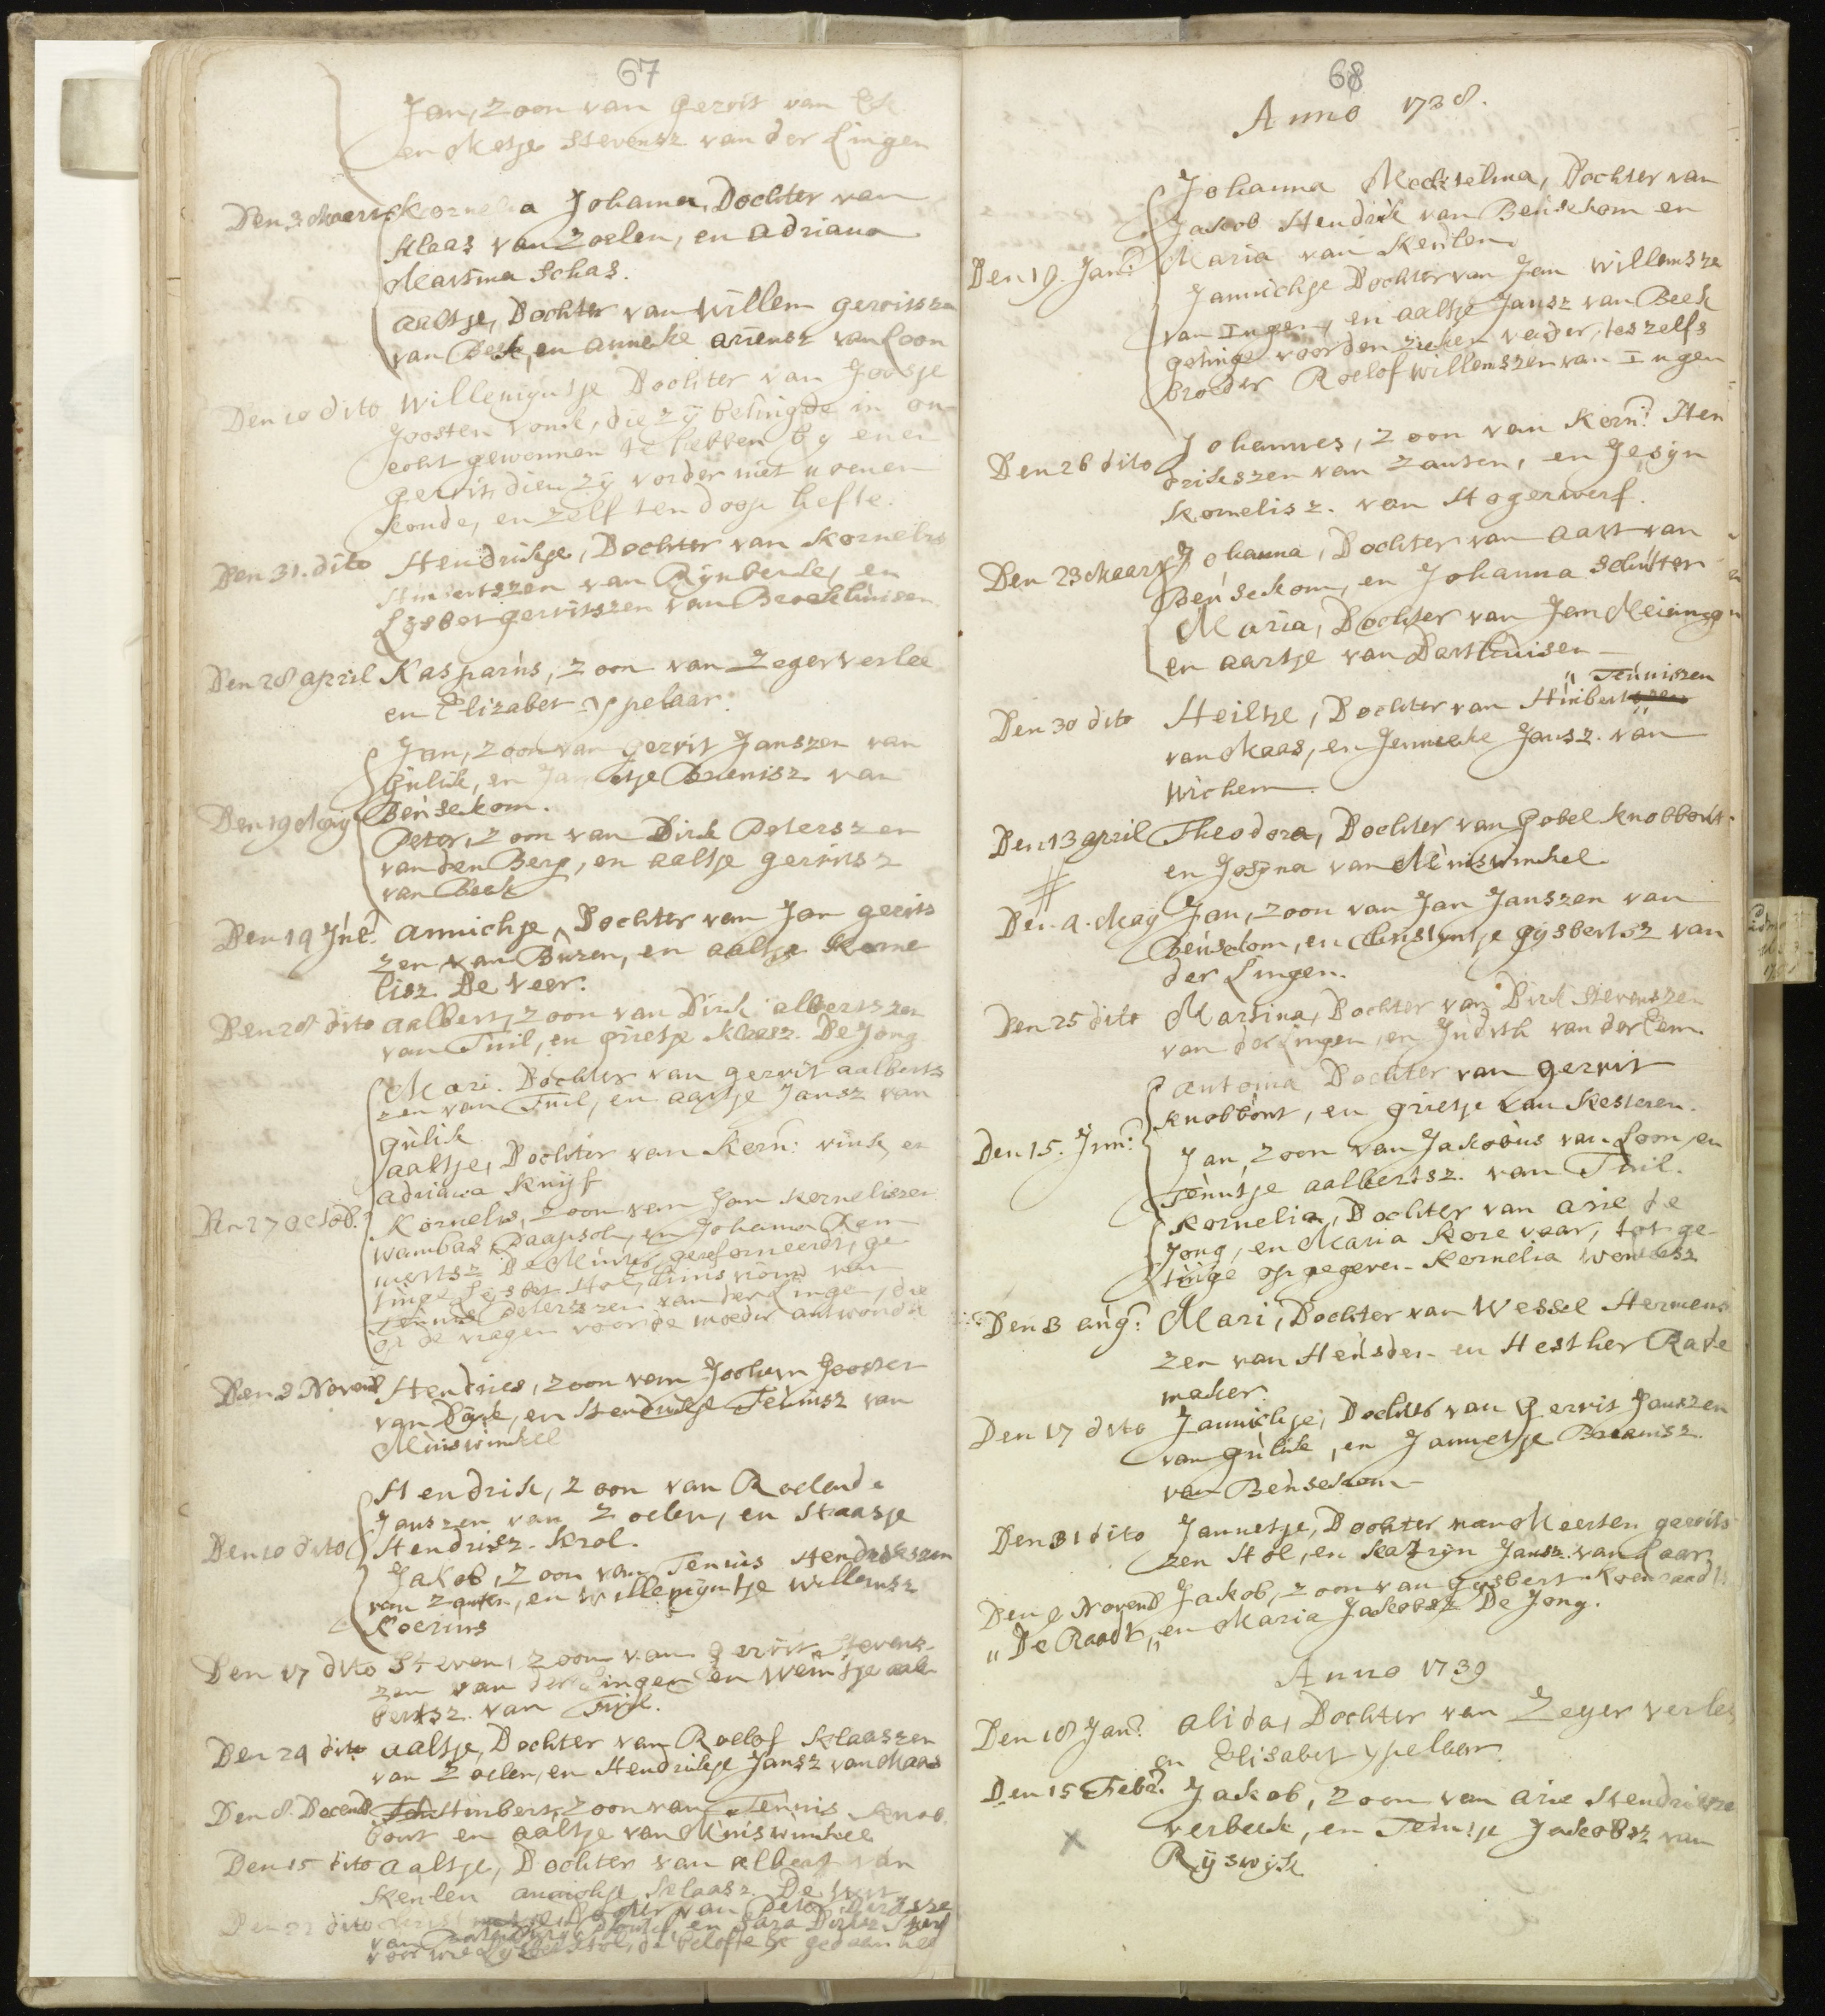 67
Jan, zoon van Gerrit van Ek
en Metje Stevensz van der Lingen
Den 3 Maert Kornelia Johanna, Dochter van
Klaas van Zoelen, en Adriana
Martina Schas.
Aaltje, Dochter van Willem Gerritszen
van Beek, en Anneke Ariensz van Loon
Den 10 dito Willemyntje Dochter van Joosje
Joosten Vonk, die zÿ betuigde in on
echt gewonnen te hebben by enen
Gerrit, dien zÿ vorder niet noemen
konde, en zelf ten doop hefte.
Den 31. dito Hendrikje, Dochter van Kornelis
Huibertszen van Rÿnberk, en
Lÿsbet Gerritszen van Broekhuisen
Den 28 April Kasparus, zoon van Zeger Verlee
en Elizabet Ypelaar.
Jan, zoon van Gerrit Janszen van
Gulik, en Jannetje Bruenisz van
Den 19 May Beusekom.
Peter, zoon van Dirk Peterszen
van den Berg, en Aaltje Gerritsz
van Beek
Den 19 Jul: Annichje, Dochter van Jan Gerrits
zen van Buren, en Aaltje Korne
lisz. De Veer.
Den 28 dito Aalbert, zoon van Dirk Albertszen
van Tuil, en Grietje Klaasz. De Jong
Mari. Dochter van Gerrit Aalberts
zen van Tuil, en Aartje Jansz van
Gulik
Aaltje, Dochter van Korn: Vink, en
Adriana Knijf
Den 27 Octob: Kornelis, zoon van Jan Korneliszen
Wambas Paapsch, en Johanna Rem
mertsz De Munter gereformeerdt, ge
tuige Lÿsbet Hol, huisvrouw van
Teunis Peterszen van der Linge, die
op de vragen voor de moeder antwoorde
Den 3 Novemb Hendries, zoon van Jochem Joosten
van Dÿk, en Hendrikje Teunisz van
Muiswinkel
Hendrik, zoon van Roelend
Janszen van Zoelen, en Staasje
Den 10 dito Hendrisz. Krol.
Jakob, zoon van Teunis Hendrikszen
van Zanten, en Willemÿntje Willemsz
Roerius
Den 17 dito Steven, zoon van Gerrit Stevens
zen van der Lingen en Weintje Aal
bertsz. van Tuil.
Den 24 dito Aaltje, Dochter van Roelof Klaaszen
van Zoelen, en Hendrikje Jansz van Maas
Den 8. Decemb Huibert, zoon van Teunis Knob
bout en Aaltje van Muiswinkel
Den 15 dito Aaltje, Dochter van Albert van
Keulen Annichje Klaasz. De
dito Dochter van Peter
en Sara
de belofte
68
Anno 1738.
Johanna Mechtelina, Dochter van
Jakob Hendrik van Beusekom en
Den 19. Jan: Maria van Keulen
Jannichje Dochter van Jan Willemsze
van Ingen, en Aaltje Jansz van Beek
getuige voor den zieken vader, deszelfs
broeder Roelof Willemszen van Ingen
Den 26 dito Johannes, zoon van Korn: Hen
drikszen van Zanten, en Jesÿn
Kornelisz. van Hogerwerf.
Den 23 Maart Johanna, Dochter van Aart van
Beusekom, en Johanna Schutter
Maria, Dochter van Jan Meining
en Aartje van Darthuisen
" Teuniszen
Den 30 dito Heiltje, Dochter van Huibert
van Maas, en Jenneke Jansz. van
Wichem.
Den 13 April Theodora, Dochter van Gobel Knobbout
en Josÿna van Muiswinkel
Den 4. May Jan, zoon van Jan Janszen van
Beusekom, en Christyntje Gÿsbertsz van
der Lingen.
Den 25 dito Martina, Dochter van Dirk Stevenszen
van der Lingen, en Judith van der Eem.
Antonia Dochter van Gerrit
Knobbout, en Grietje van Kesteren.
Den 15. Jun: Jan, zoon van Jakobus van Loon, en
Teuntje Aalbertsz. van Tuil.
Kornelia, Dochter van Arie de
Jong, en Maria Korevaar, tot ge
tuige opgegeven Kornelia
Den 3 Aug: Mari, Dochter van Wessel Hermens
zen van Heusden en Hesther Rade
maker.
Den 17 dito Jannichje, Dochter van Gerrit Janszen
van Gulik, en Jannetje Bruenisz.
van Beusekom
Den 31 dito Jannetje, Dochter van Meerten Gerrits
zen Hol, en Katryn Jansz. van Laar
Den 9 Novemb Jakob, zoon van Gysbert Koenraadts
" De Raadt,, en Maria Jakobsz De Jong.
Anno 1739
Den 18 Jan: Alida, Dochter van Zeger Verlee
en Elisabet Ypelaar.
Den 15 Feb: Jakob, zoon van Arie Hendriksze
Verbeek, en Teuntje Jakobsz van
Rÿswÿk